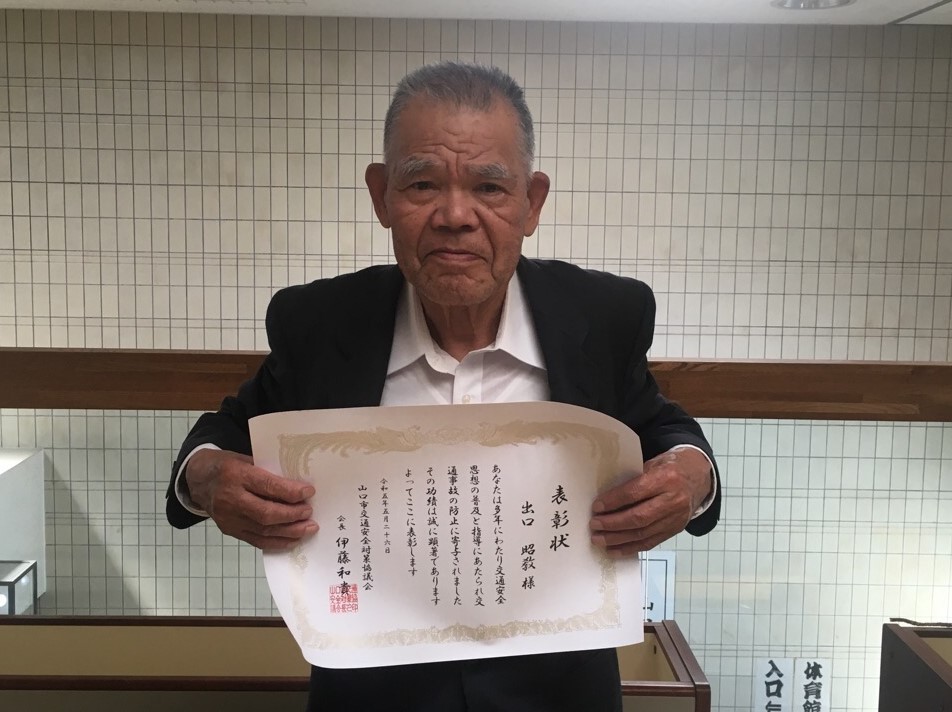 表彰状
出口 昭教 様
あなたは多年にわたり交通安全
思想の普及と指導にあたられ交
通事故の防止に寄与されました
その功績は誠に顕著であります
よってここに表彰します
令和五年五月二十六日
山口市交通安全対策協議会
会長 伊藤和貴
体育館
入口